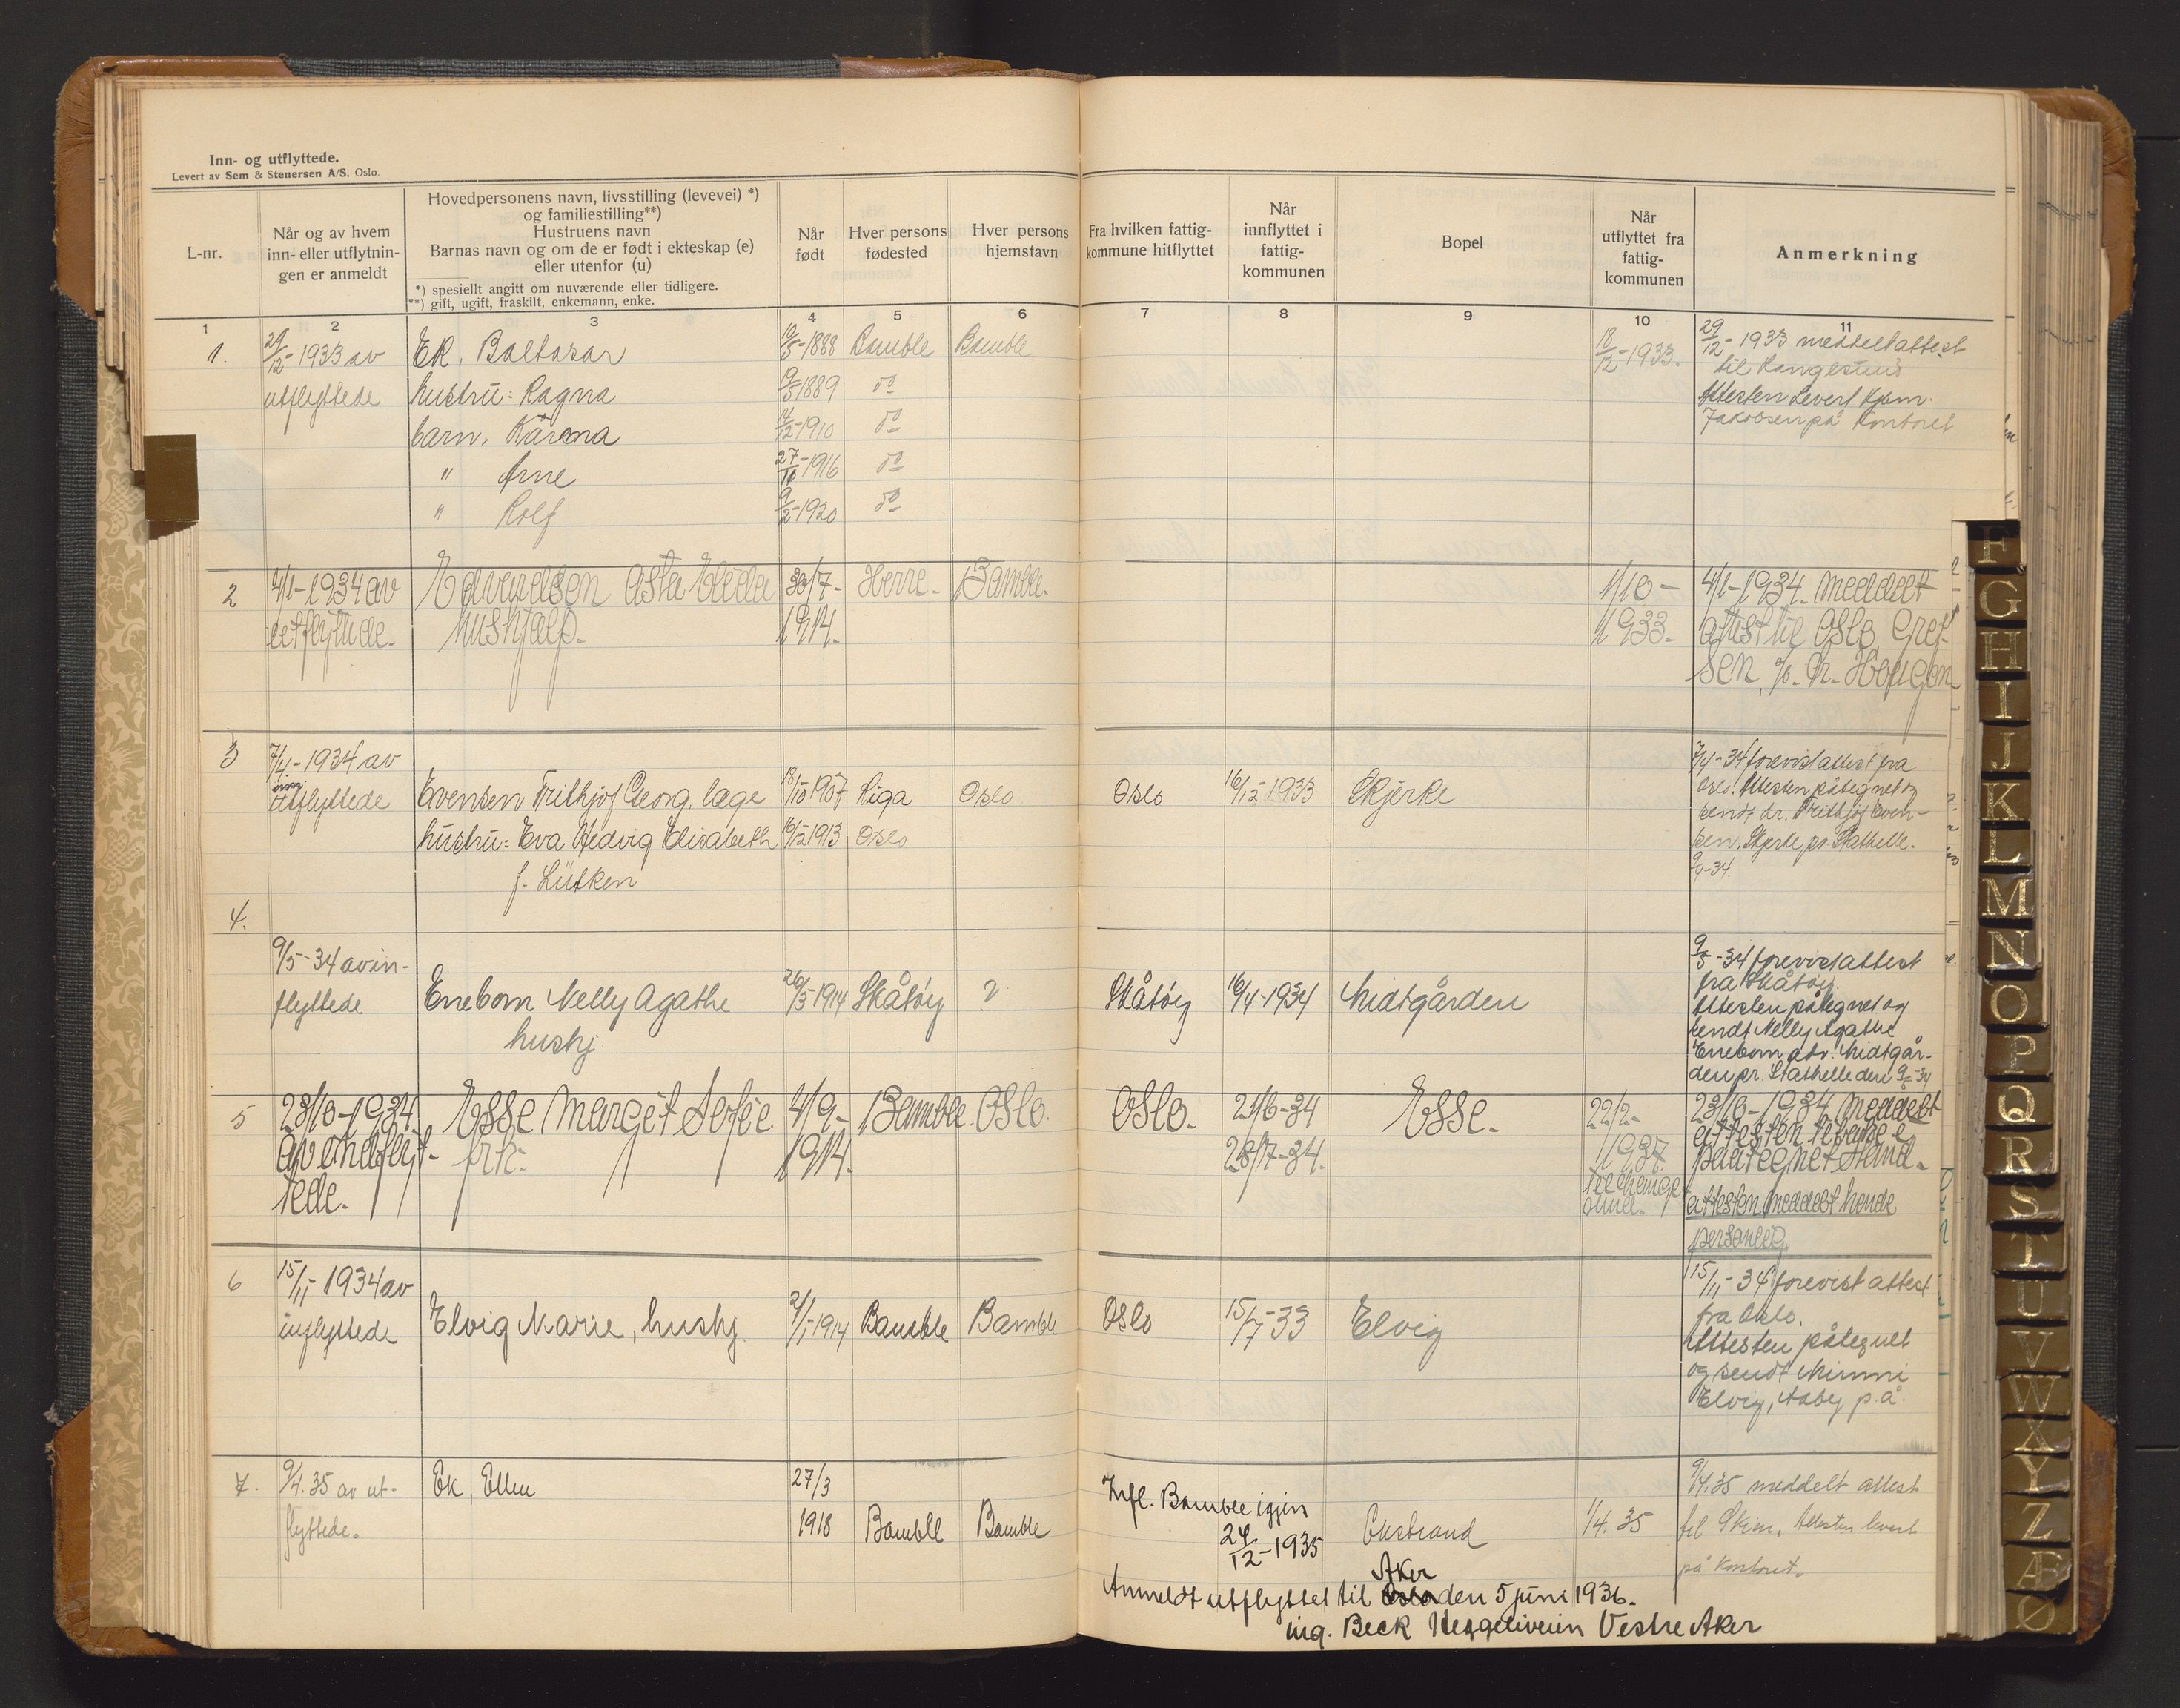 Inn- og utflyttede.
Levert av Sem & Stenersen A/S, Oslo.
L-nr.
Når og av hvem
inn- eller utflytnin-
gen er anmeldt
Hovedpersonens navn, livsstilling (levevei) *)
og familiestilling**)
Hustruens navn
Barnas navn og om de er født i ekteskap (e)
eller utenfor (u)
*) spesiellt angitt om nuværende eller tidligere.
**) gift, ugift, fraskilt, enkemann, enke.
Når
født
Hver persons
fødested
Hver persons
hjemstavn
Fra hvilken fattig-
kommune hitflyttet
Når
innflyttet i
fattig-
kommunen
Bopel
Når
utflyttet fra
fattig-
kommunen
Anmerkning
1 2 3 4 5 6 7 8 9 10 11
1. 29/12-1933 av Ek, Baltasar 10/5-1888 Bamble Bamble 18/12-1933. 29/12-1933 meddelt attest
til Kangesund
utflyttede hustru: Ragna 19/5 1889 do Attesten levert hjem.
barn, Karena 14/12-1910 do Jakobsen på kontoret
" Arne 27/10-1916 do
" Rolf 9/2-1920 do
2 4/1-1934 av Edvardsen Asta Elida 30/7- Herre. Bamble. 1/10- 4/1-1934. meddelt
utflyttede. hushjalp. 1914. 1933. attest til Oslo Gref-
sen, c/o. Chr. Hougen
3 7/4-1934 av 7/4-34 forevist attest fra
inn
utflyttede Evensen Frithjof Georg, læge 18/10 1907 Riga Oslo Oslo 16/12-1933 Skjerke Oslo. Attesten påtegnet og
sendt dr. Frithjof Even-
hustru: Eva Hedvig Elisabeth 16/12 1913 Oslo sen, Skjerke pr. Stathelle.
f. Lütken 9/4-34.
4.
9/5-34 av in- 9/5-34 forevist attest
flyttede Enebom Nelly Agathe 26/3-1914 Skåtøy ? Skåtøy 16/4-1934 Midtgården fra Skåtøy.
hushj. Attesten påtegnet og
sendt Nelly Agathe
Enebom adr. Midtgår-
den pr. Stathelle den 9/5-34
5 23/8-1934 Esse Margit Sofie 4/9- Bamble. Oslo. Oslo. 21/6-34 Esse. 22/2- 23/8-1934 meddelt
av indflyt- frk. 1914. 28/7-34. 1937. attesten tilbake e
tede. påtegnet stand.
attesten meddelt hende
personlig.
6 15/11-1934 av 15/11-34 forevist attest
innflyttede Elvig Marie, hushj. 2/1-1914 Bamble Bamble Oslo 15/7-33 Elvig fra Oslo.
Attesten påtegnet
og sendt Mimmi
Elvig, Aaby p.å.
7. 9/4.35 av ut- Ek, Ellen 27/3 9/4.35 meddelt attest
flyttede. 1918 Bamble Bamble Infl. Bamble igjen 24/12-1935 Ekstrand 1/4.35 til Skien. Attesten levert
på kontoret.
Aker
Anmeldt utflyttet til Oslo den 5 juni 1936.
ing. Beck Heggeliveien Vestre Aker
F
G
H
I
J
K
L
M
N
O
P
Q
R
S
T
U
V
W
X
Y
Z
Æ
Ø